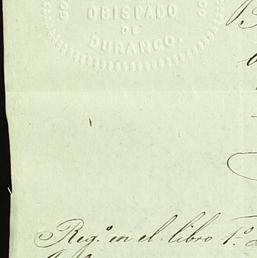 OBISPADO
DE
DURANGO.
Reg.º en el libro 1.º